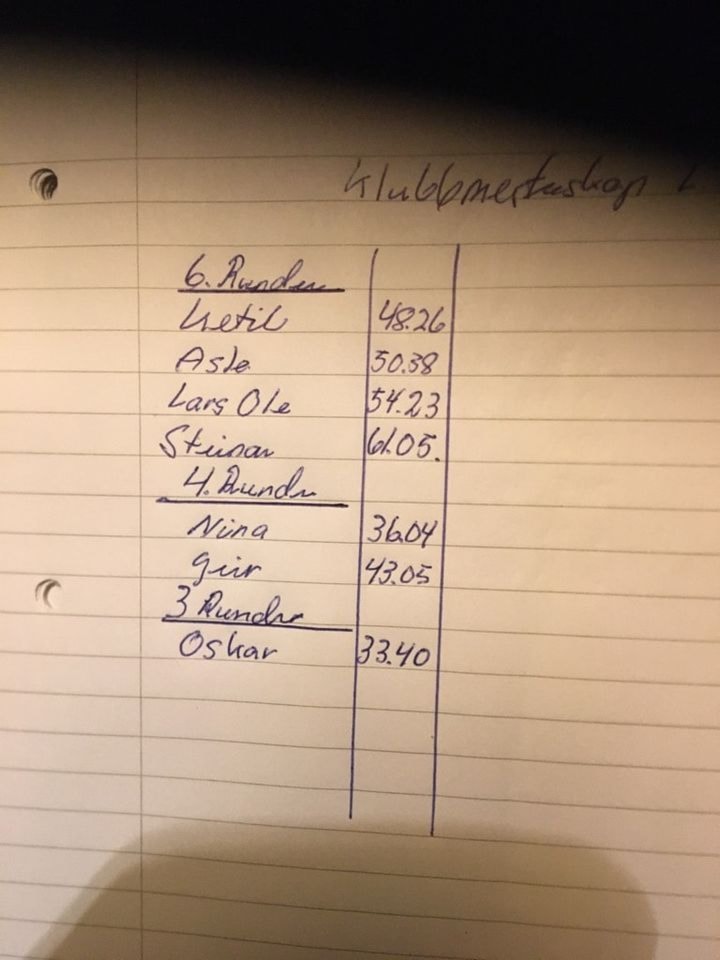 Klubbmesterskap
6. Runder
Ketil 48.26
Asle 50.38
Lars Ole 54.23
Steinar 61.05.
4. Runder
Nina 36.04
Geir 43.05
3 Runder
Oskar 33.40